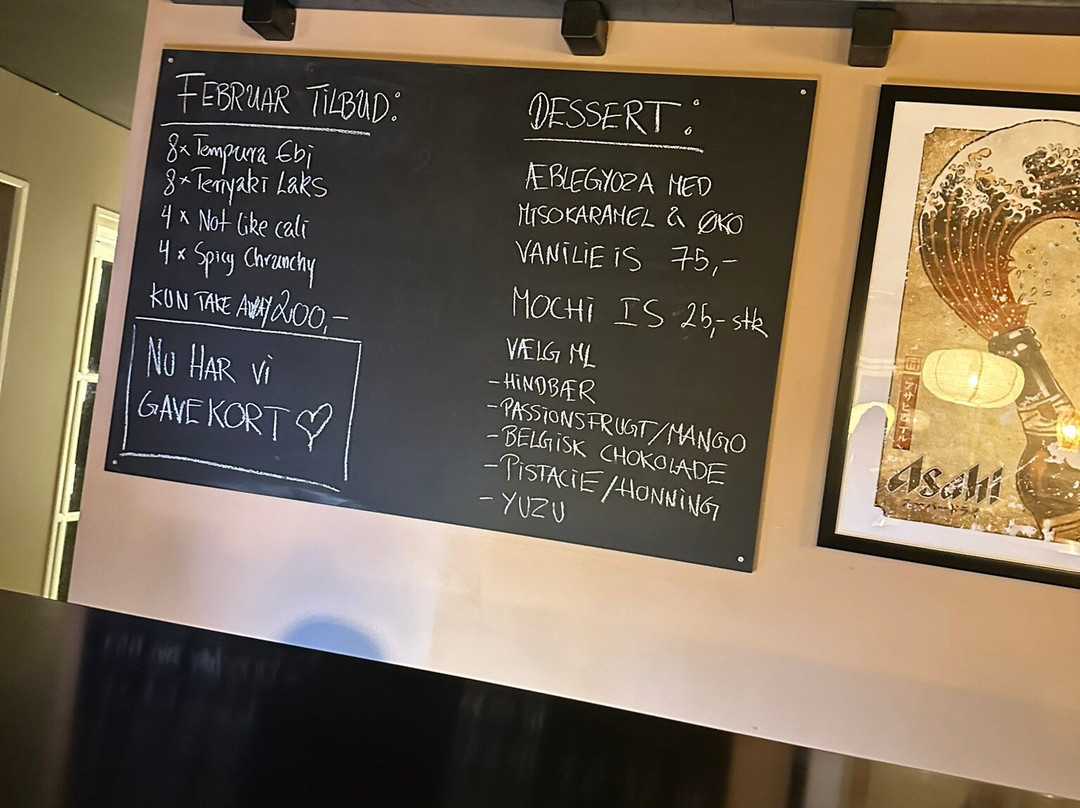 FEBRUAR TILBUD:
8x Tempura Ebi
8x Teriyaki Laks
4 x Not like cali
4 x Spicy Chrunchy
KUN TAKE AWAY 200,-
NU HAR Vi
GAVEKORT
DESSERT:
ÆBLEGYOZA MED
MISOKARAMEL & ØKO
VANILIE iS 75,-
MOCHi IS 25,- stk
VÆLG ML
- HiNDBÆR
- PASSIONSFRUGT/MANGO
- BELGiSK CHOKOLADE
- PiSTACiE/HONNiNG
- YUZU
Asahi